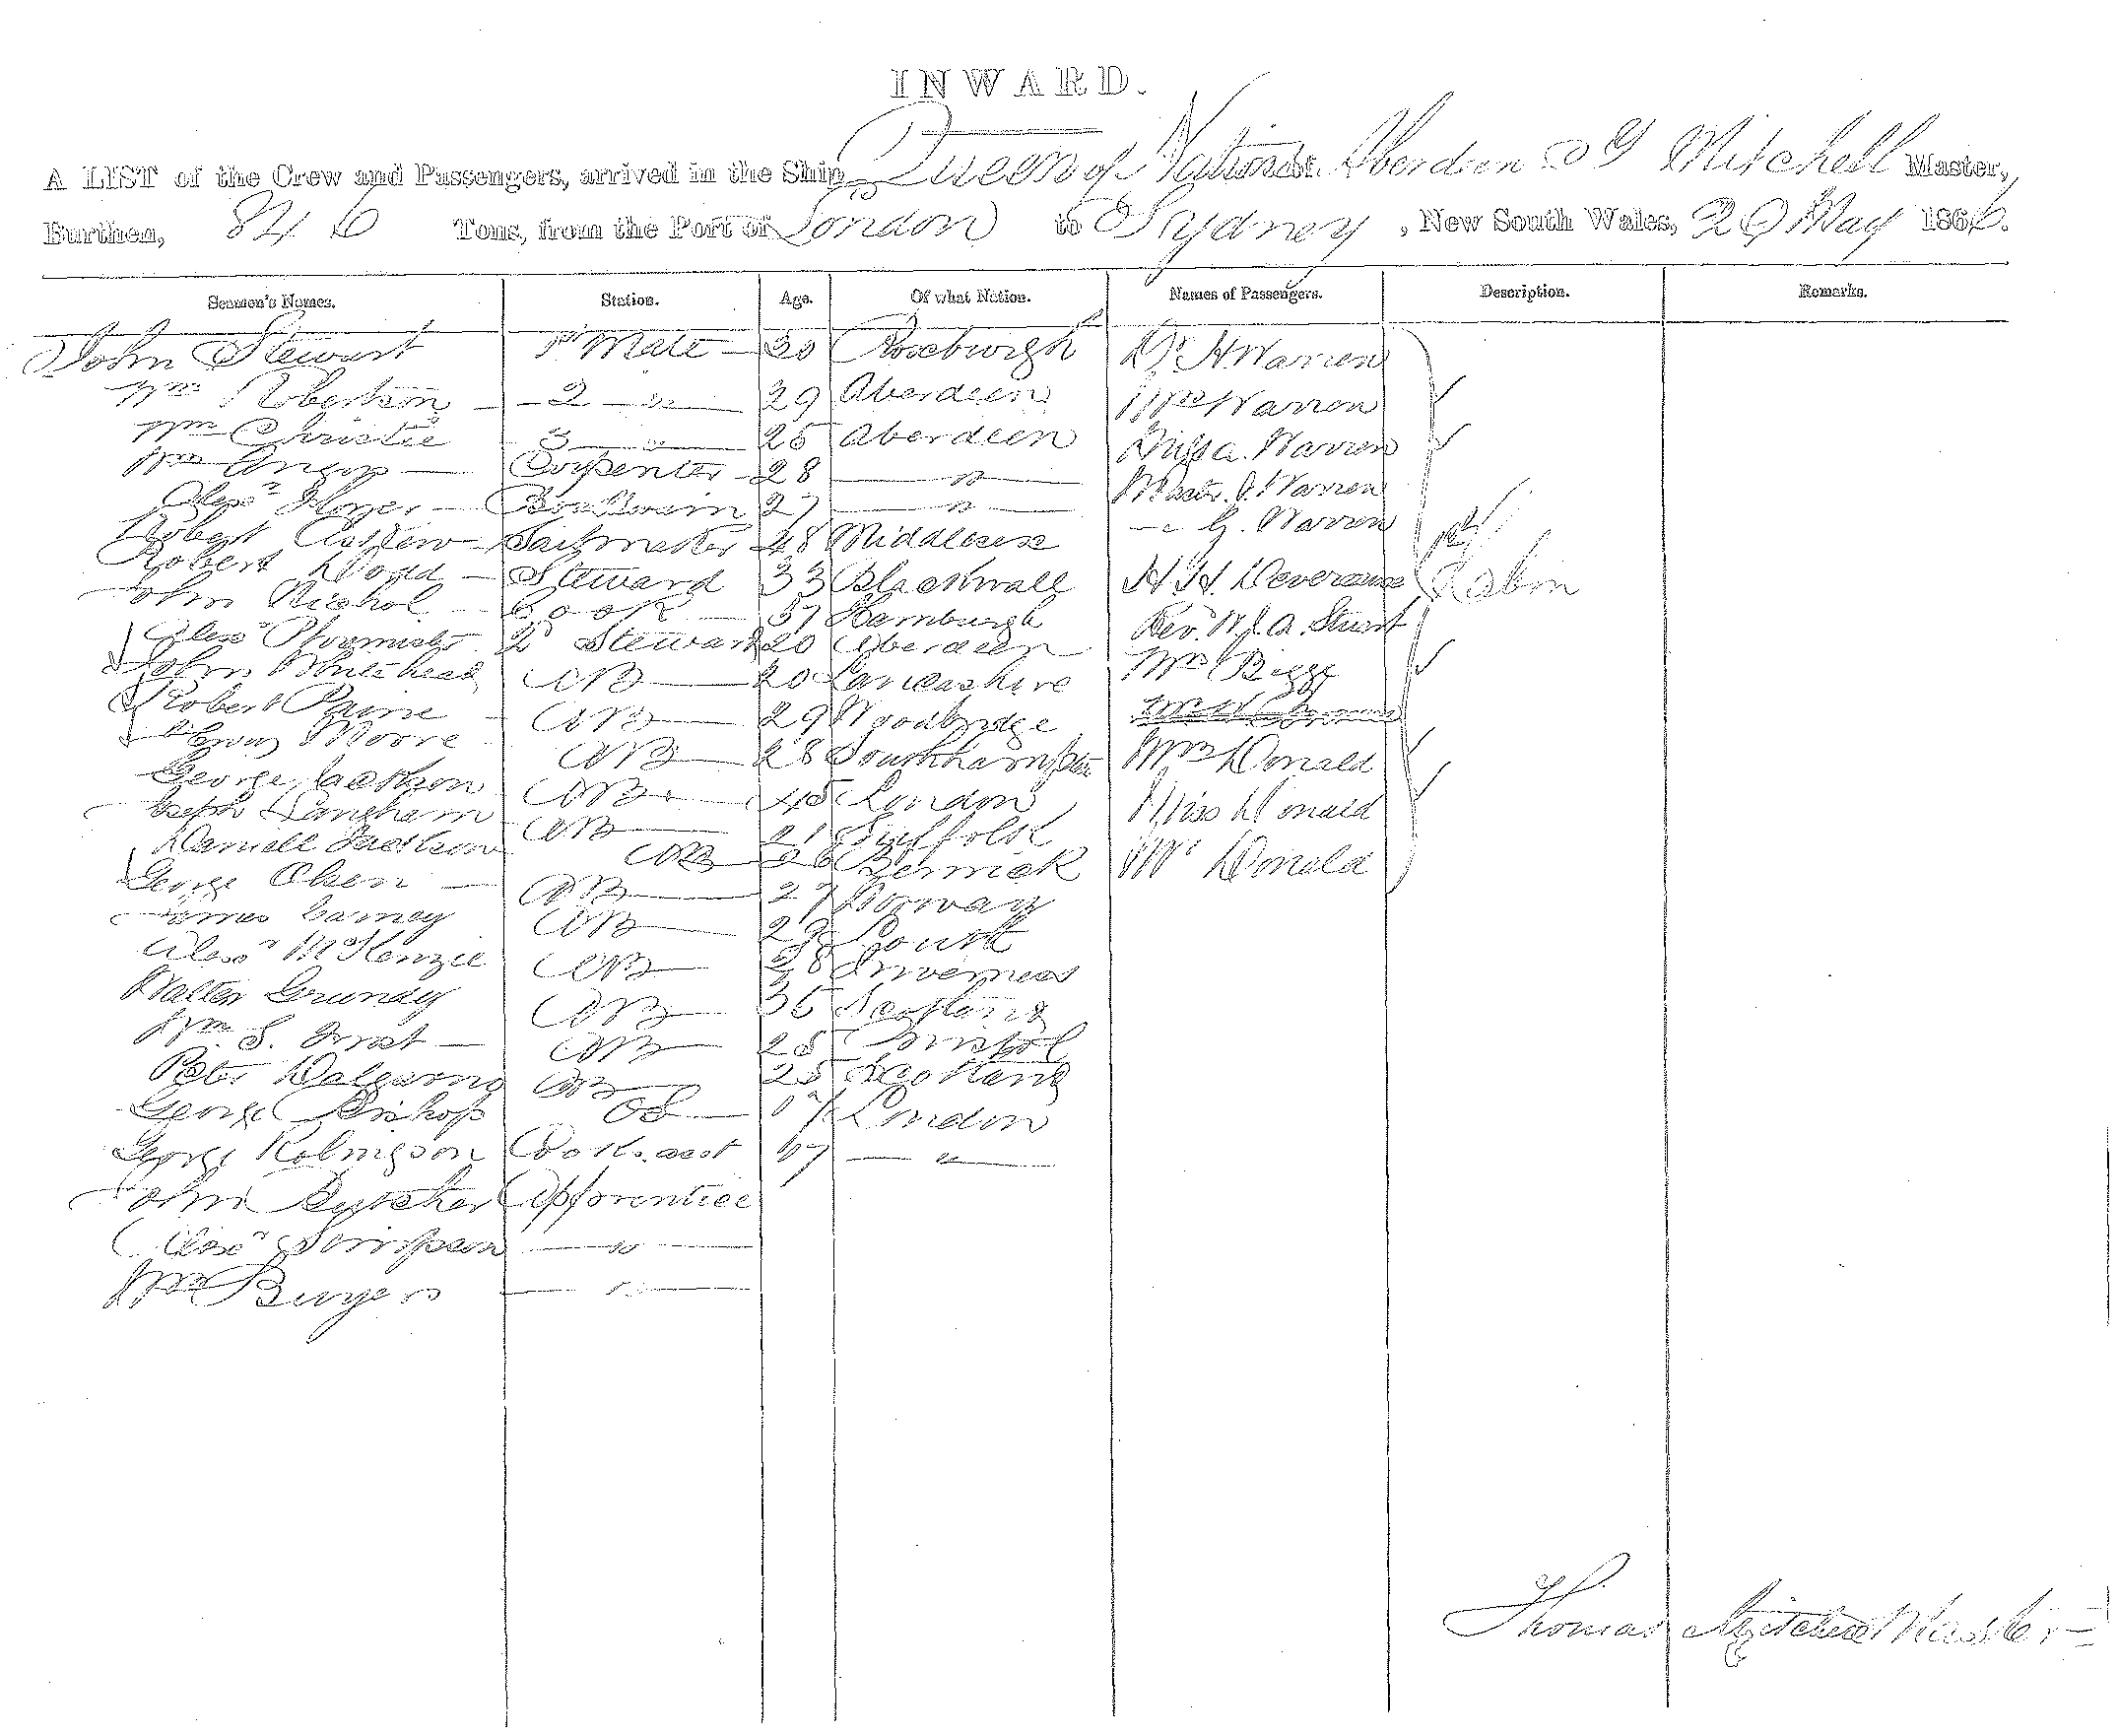 INWARD.
A LIST of the Crew and Passengers, arrived in the Ship Queen of Nations of Aberdeen Mitchell Master,
Burthen, 846 Tons, from the Port of London to Sydney, New South Wales, 29 May 1866.
Seamen's Names. Station. Age. Of what Nation. Names of Passengers. Description. Remarks.
John Stewart 1st Mate 30 Roxburgh Dr. H. Warren
Wm Robertson 2 " 29 Aberdeen Mrs Warren
Wm Christie 3 " 25 Aberdeen Miss a. Warren
Wm Angus Carpenter 28 " Master J. Warren
Alexr Boatswain 27 " " G. Warren
Robert Askew Sailmaker 48 Middlesex
Robert Dodd Steward 33 Blackwall H. H. Devereaux Cabin
John Nichol Cook 37 Hamburgh Rev. W. J. A. Stuart
Alexr 2d Steward 20 Aberdeen Mrs Biggs
John Whitehead AB 20 Lancashire
Robert Paine AB 29 Woodbridge
Henry Moore AB 28 Southampton Mrs Donald
George Jackson AB 45 London Miss Donald
Joseph Langham AB 21 Suffolk
Daniell Jackson AB 26 Berwick Mr Donald
George Olsen AB 27 Norway
James Carney AB 29 Louth
Alexr McKenzie AB 28 Inverness
Walter Grundy AB 36 Scotland
Wm. S. AB 25 Bristol
Peter Dalgarno AB 25 Scotland
George Bishop OS 17 London
George Cook. asst 17 "
John Butcher Apprentice
Alexr Simpson "
Wm Burgess "
Thomas Mitchell Master